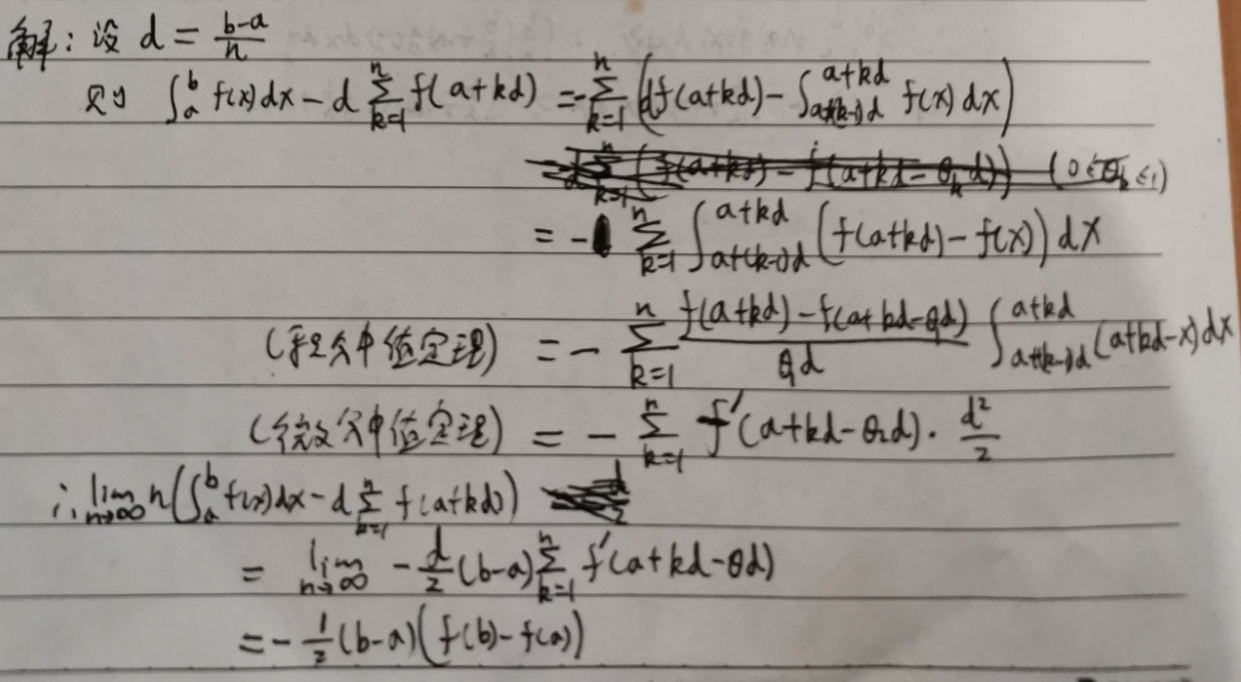 解：设 d = \frac{b-a}{n}
则 ∫_a^b f(x)dx - d ∑_{k=1}^n f(a+kd) = -∑_{k=1}^n (df(a+kd) - ∫_{a+(k-1)d}^{a+kd} f(x)dx)
= - ∑_{k=1}^n ∫_{a+(k-1)d}^{a+kd} (f(a+kd) - f(x))dx
(积分中值定理) = - ∑_{k=1}^n \frac{f(a+kd) - f(a+kd-θ_1d)}{θ_1d} ∫_{a+(k-1)d}^{a+kd} (a+kd-x)dx
(微分中值定理) = - ∑_{k=1}^n f'(a+kd-θ_2d) · \frac{d^2}{2}
∴ \lim_{n→∞} n(∫_a^b f(x)dx - d ∑_{k=1}^n f(a+kd))
= \lim_{n→∞} -\frac{d}{2}(b-a) ∑_{k=1}^n f'(a+kd-θd)
= -\frac{1}{2}(b-a)(f(b)-f(a))